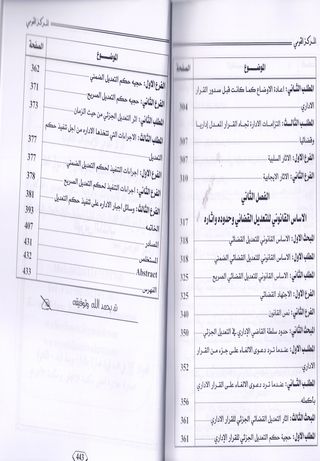 المركز القومي
الموضوع
الصفحة
المطلب الثاني: اعادة الاوضاع كما كانت قبل صدور القرار
الاداري
304
المطلب الثالث: التزامات الادارة تجاه القرار المعدل إداريا
وقضائيا
307
الفرع الاول: الاثار السلبية
307
الفرع الثاني: الاثار الايجابية
310
الفصل الثاني
الاساس القانوني للتعديل القضائي وحدوده واثاره
317
المبحث الاول: الاساس القانوني للتعديل القضائي
318
المطلب الاول: الاساس القانوني للتعديل القضائي الضمني
318
المطلب الثاني: الاساس القانوني للتعديل القضائي الصريح
325
الفرع الاول: الاجتهاد القضائي
325
الفرع الثاني: نص القانون
340
المبحث الثاني: حدود سلطة القاضي الإداري في التعديل
350
المطلب الاول: عندما ترد دعوى الالغاء على جزء من القرار
الاداري
352
المطلب الثاني: عندما ترد دعوى الالغاء على القرار الاداري
بأكمله
356
المبحث الثالث: اثار التعديل القضائي الجزئي للقرار الاداري
361
المطلب الاول: حجية حكم التعديل الجزئي للقرار الإداري
361
المركز القومي
الموضوع
الصفحة
الفرع الاول: حجيه حكم التعديل الضمني
362
الفرع الثاني: حجيه حكم التعديل الصريح
371
المطلب الثاني: اثار التعديل الجزئي من حيث الزمان
373
المطلب الثالث: الاجراءات التي تتخذها الاداره من اجل تنفيذ حكم
التعديل
377
الفرع الاول: اجراءات التنفيذ لحكم التعديل الضمني
377
الفرع الثاني: اجراءات التنفيذ لحكم التعديل الصريح
378
الفرع الثالث: وسائل اجبار الاداره على تنفيذ حكم التعديل
381
الخاتمه
393
المصادر
407
المستخلص
431
Abstract
432
الفهرس
433
تم بحمد الله وتوفيقه
443